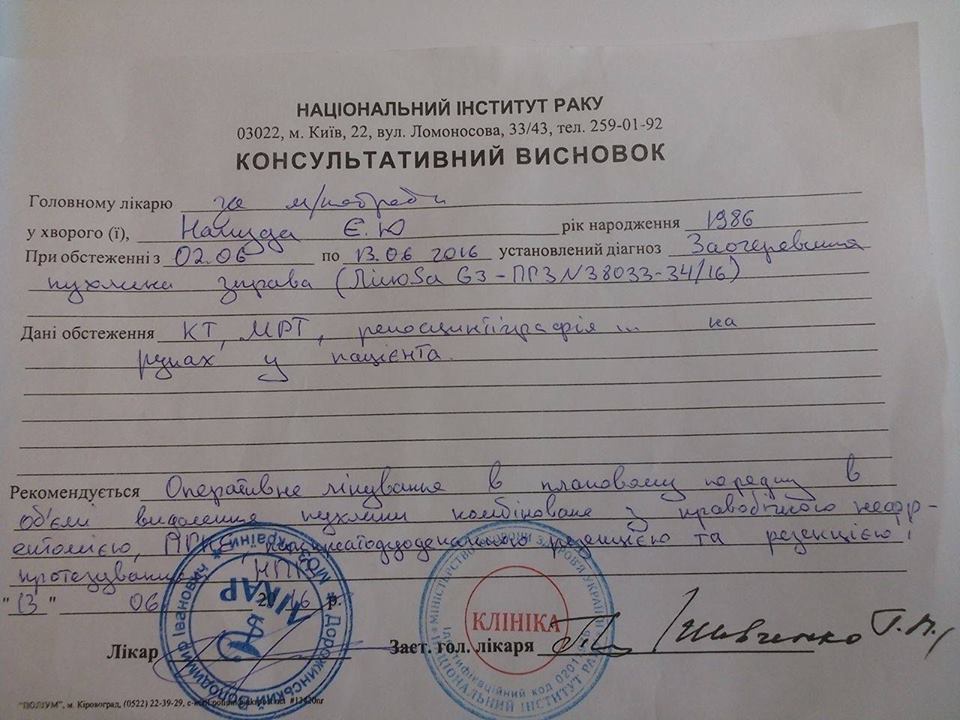 НАЦІОНАЛЬНИЙ ІНСТИТУТ РАКУ
03022, м. Київ, 22, вул. Ломоносова, 33/43, тел. 259-01-92
КОНСУЛЬТАТИВНИЙ ВИСНОВОК
Головному лікарю за м/набради
у хворого (ї), Є. Ю рік народження 1986
При обстеженні з 02.06 по 13.06 2016 установлений діагноз Заочеревинна
пухлина зправа (ЛіпоSa G3 - ПГЗ N 38033-34/16)
Дані обстеження КТ, МРТ, реносцинтіграфія ... на
руках у пацієнта.
Рекомендується Оперативне лікування в плановому порядку в
об'ємі видалення пухлини комбіноване з правобічною нефр-
ектомією, резекцією та резекцією і
протезування НПВ
"13" 06 2016 р.
Лікар Заст. гол. лікаря Шевченко Г.М.
ЛІКАР
Дорожинський Володимир Іванович
МОЗ України
КЛІНІКА
МІНІСТЕРСТВО ОХОРОНИ ЗДОРОВ'Я УКРАЇНИ
НАЦІОНАЛЬНИЙ ІНСТИТУТ РАКУ
Ідентифікаційний код 0201
"ПОЛІУМ", м. Кіровоград, (0522) 22-39-29,